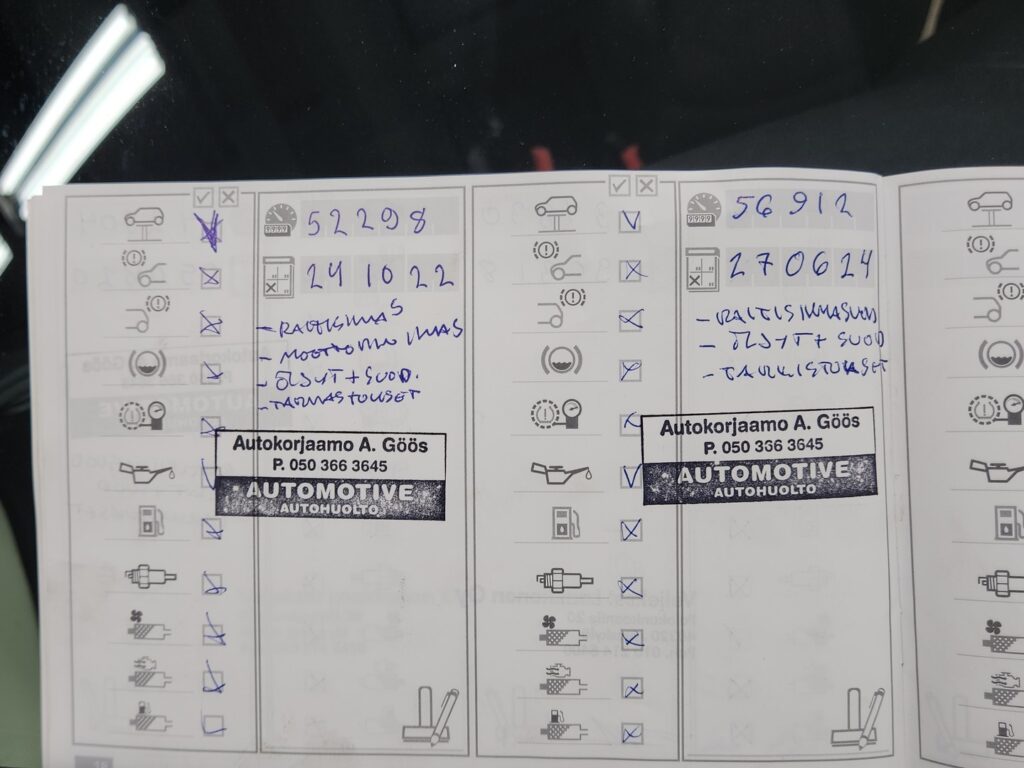 52298
241022
- RAITISILMAS
- MOOTTORIN ILMAS
- ÖLJYT + SUOD.
- TARKASTUKSET
Autokorjaamo A. Göös
P. 050 366 3645
AUTOMOTIVE
AUTOHUOLTO
56912
270624
- RAITISILMASUOD
- ÖLJYT + SUOD
- TARKISTUKSET
Autokorjaamo A. Göös
P. 050 366 3645
AUTOMOTIVE
AUTOHUOLTO